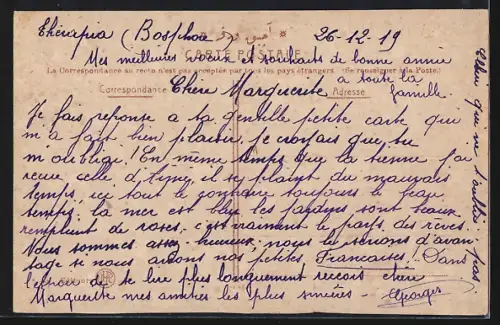 Thérapia (Bosphore) 26-12-19
Mes meilleurs voeux et souhaits de bonne année
CARTE POSTALE
La Correspondance au recto n'est pas acceptée par tous les pays étrangers (Se renseigner à la Poste.)
à toute la famille.
Correspondance Adresse
Chère Marguerite
Je fais reponse a ta gentille petite carte que
m'a fait bien plaisir, je croyais que tu
m'oubliai! En meme temps que la tienne j'ai
reçue celle d' il se plaint du mauvais
temps, ici tout le contraire toujours le beau
temps, la mer est bleu les jardins sont beaux
remplient de roses, c'est vraiment le pays des rêves.
Nous sommes assez heureux, nous le serions d'avan-
tage si nous avions nos petites Françaises! Dans
l'espoir de te lire plus longuement reçois chère
Marguerite mes amities les plus sincères
Georges
que ne t'oublie pas.